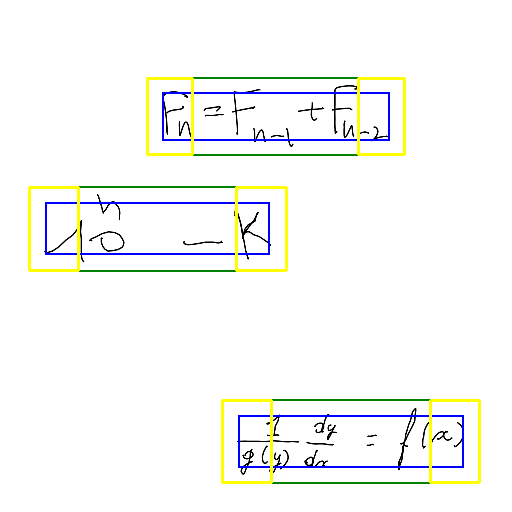 F_n = F_{n-1} + F_{n-2}
10^n - K
\frac{1}{g(y)} \frac{dy}{dx} = f(x)